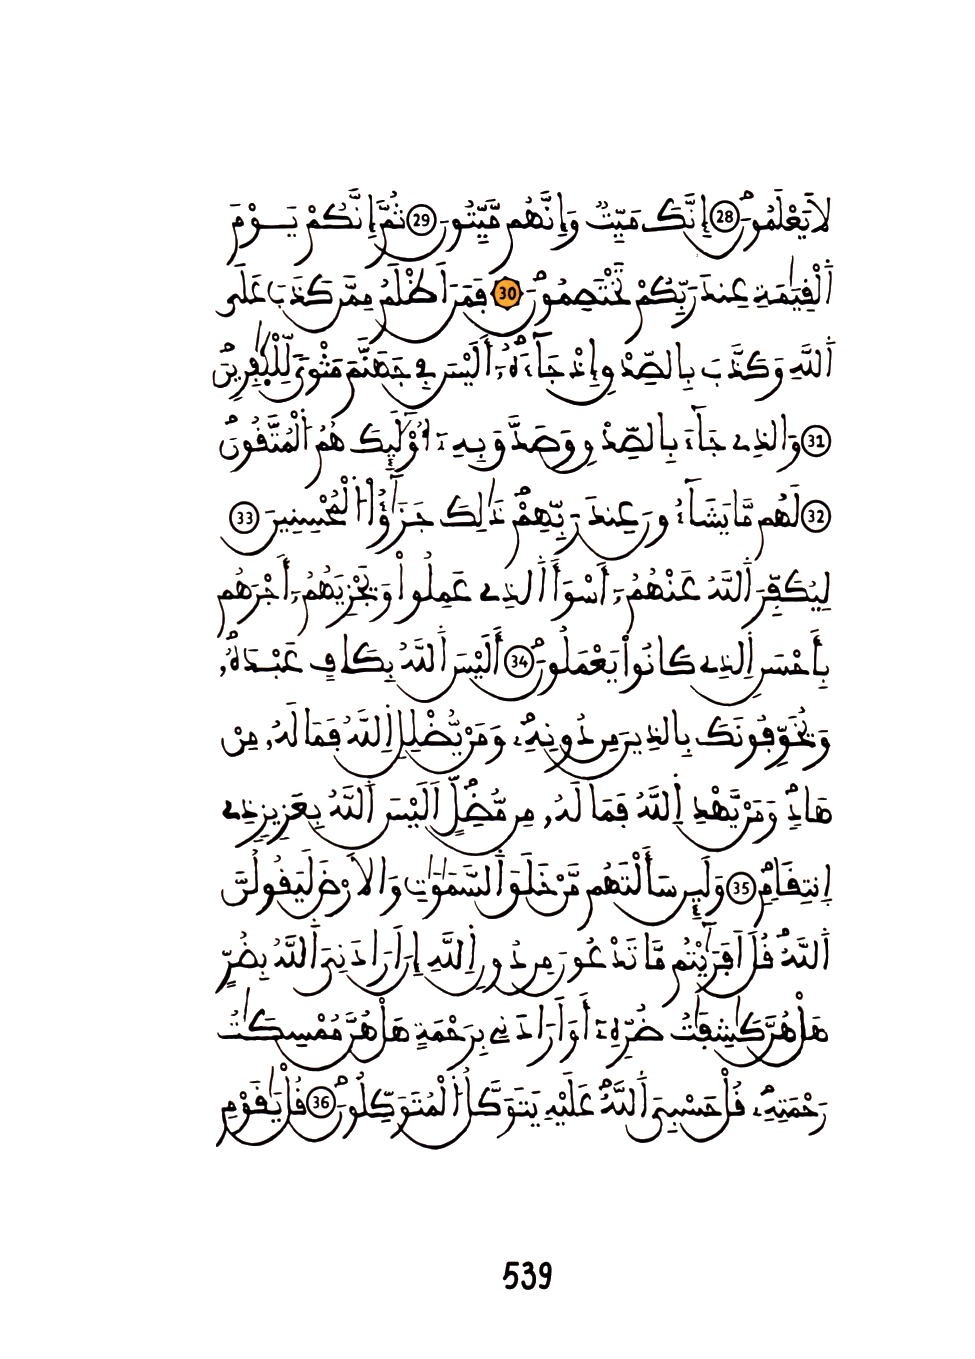 لَا يَعْلَمُونَ 28 إِنَّكَ مَيِّتٌ وَإِنَّهُم مَّيِّتُونَ 29 ثُمَّ إِنَّكُمْ يَوْمَ
اَ۬لْقِيَٰمَةِ عِندَ رَبِّكُمْ تَخْتَصِمُونَ 30 فَمَنَ اَظْلَمُ مِمَّن كَذَبَ عَلَى
اَ۬للَّهِ وَكَذَّبَ بِالصِّدْقِ إِذْ جَآءَهُۥٓ أَلَيْسَ فِے جَهَنَّمَ مَثْوىً لِّلْكٰ۪فِرِينَ
31 وَالذِے جَآءَ بِالصِّدْقِ وَصَدَّقَ بِهِۦٓ أُوْلَٰٓئِكَ هُمُ اُ۬لْمُتَّقُونَ
32 لَهُم مَّا يَشَآءُونَ عِندَ رَبِّهِمْ ذَٰلِكَ جَزَٰٓؤُاْ اُ۬لْمُحْسِنِينَ 33
لِيُكَفِّرَ اَ۬للَّهُ عَنْهُمُۥٓ أَسْوَأَ اَ۬لذِے عَمِلُواْ وَيَجْزِيَهُمُۥٓ أَجْرَهُم
بِأَحْسَنِ اِ۬لذِے كَانُواْ يَعْمَلُونَ 34 أَلَيْسَ اَ۬للَّهُ بِكَافٍ عَبْدَهُۥ
وَيُخَوِّفُونَكَ بِالذِينَ مِن دُونِهِۦ وَمَنْ يُّضْلِلِ اِ۬للَّهُ فَمَا لَهُۥ مِنْ
هَادٖ وَمَنْ يَّهْدِ اِ۬للَّهُ فَمَا لَهُۥ مِن مُّضِلٍّ اَلَيْسَ اَ۬للَّهُ بِعَزِيزٖ ذِے
اِ۪نتِقَامٖ 35 وَلَئِن سَأَلْتَهُم مَّنْ خَلَقَ اَ۬لسَّمَٰوَٰتِ وَالَارْضَ لَيَقُولُنَّ
اَ۬للَّهُ قُلَ اَفَرَٰٓيْتُم مَّا تَدْعُونَ مِن دُونِ اِ۬للَّهِ إِنَ اَرَادَنِيَ اَ۬للَّهُ بِضُرٍّ
هَلْ هُنَّ كَٰشِفَٰتُ ضُرِّهِۦٓ أَوَ اَرَادَنِے بِرَحْمَةٍ هَلْ هُنَّ مُمْسِكَٰتُ
رَحْمَتِهِۦ قُلْ حَسْبِيَ اَ۬للَّهُ عَلَيْهِ يَتَوَكَّلُ اُ۬لْمُتَوَكِّلُونَ 36 قُلْ يَٰقَوْمِ
539